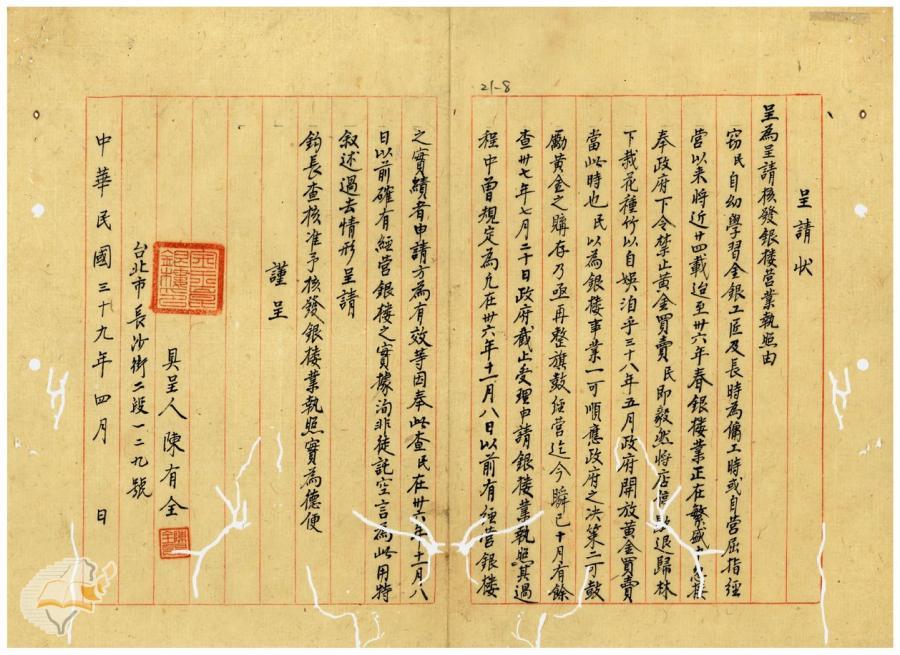 21-8
呈請狀
呈為呈請核發銀楼营業執照由
窃民自幼學習金銀工匠及長時為傭工時或自营屈指經
营以来将近廿四載迨至卅六年春銀楼業正在繁盛
奉政府下令禁止黃金買賣民即毅然将店退歸林
下栽花種竹以自娱洎乎三十八年五月政府開放黃金買賣
當此時也民以為銀楼事業一可順應政府之决策二可鼓
勵黃金之購存乃亟再整旗鼓經营迄今瞬已十月有餘
查卅七年七月二十日政府截止受理申請銀楼業執照其過
程中曽規定為凡在卅六年十一月八日以前有經营銀楼
之實績者申請方為有效等因奉此查民在卅六年十一月八
日以前確有經营銀楼之實據洵非徒託空言為此用特
叙述過去情形呈請
鈞長查核准予核發銀楼業執照實為德便
謹呈
具呈人陳有全
台北市長沙街二段一二九號
中華民國三十九年四月 日